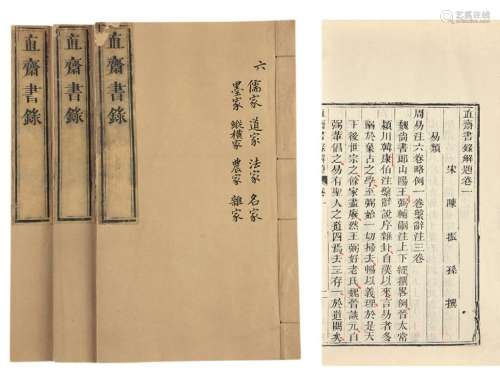 直齋書錄
直齋書錄
直齋書錄
六
儒家 道家 法家 名家
墨家 縱橫家 農家 雜家
直齋書錄解題卷一
宋 陳 振 孫 撰
易類
周易注六卷略例一卷繫辭注三卷
魏尚書郎山陽王弼輔嗣注上下經撰畧例晉太常
潁川韓康伯注繫辭說序雜卦自漢以來言易者多
溺於象占之學至弼始一切掃去暢以義理於是天
下後世宗之餘家盡廢然王弼好老氏魏晉談元自
弼輩倡之易有聖人之道四焉去三存一於道闕矣